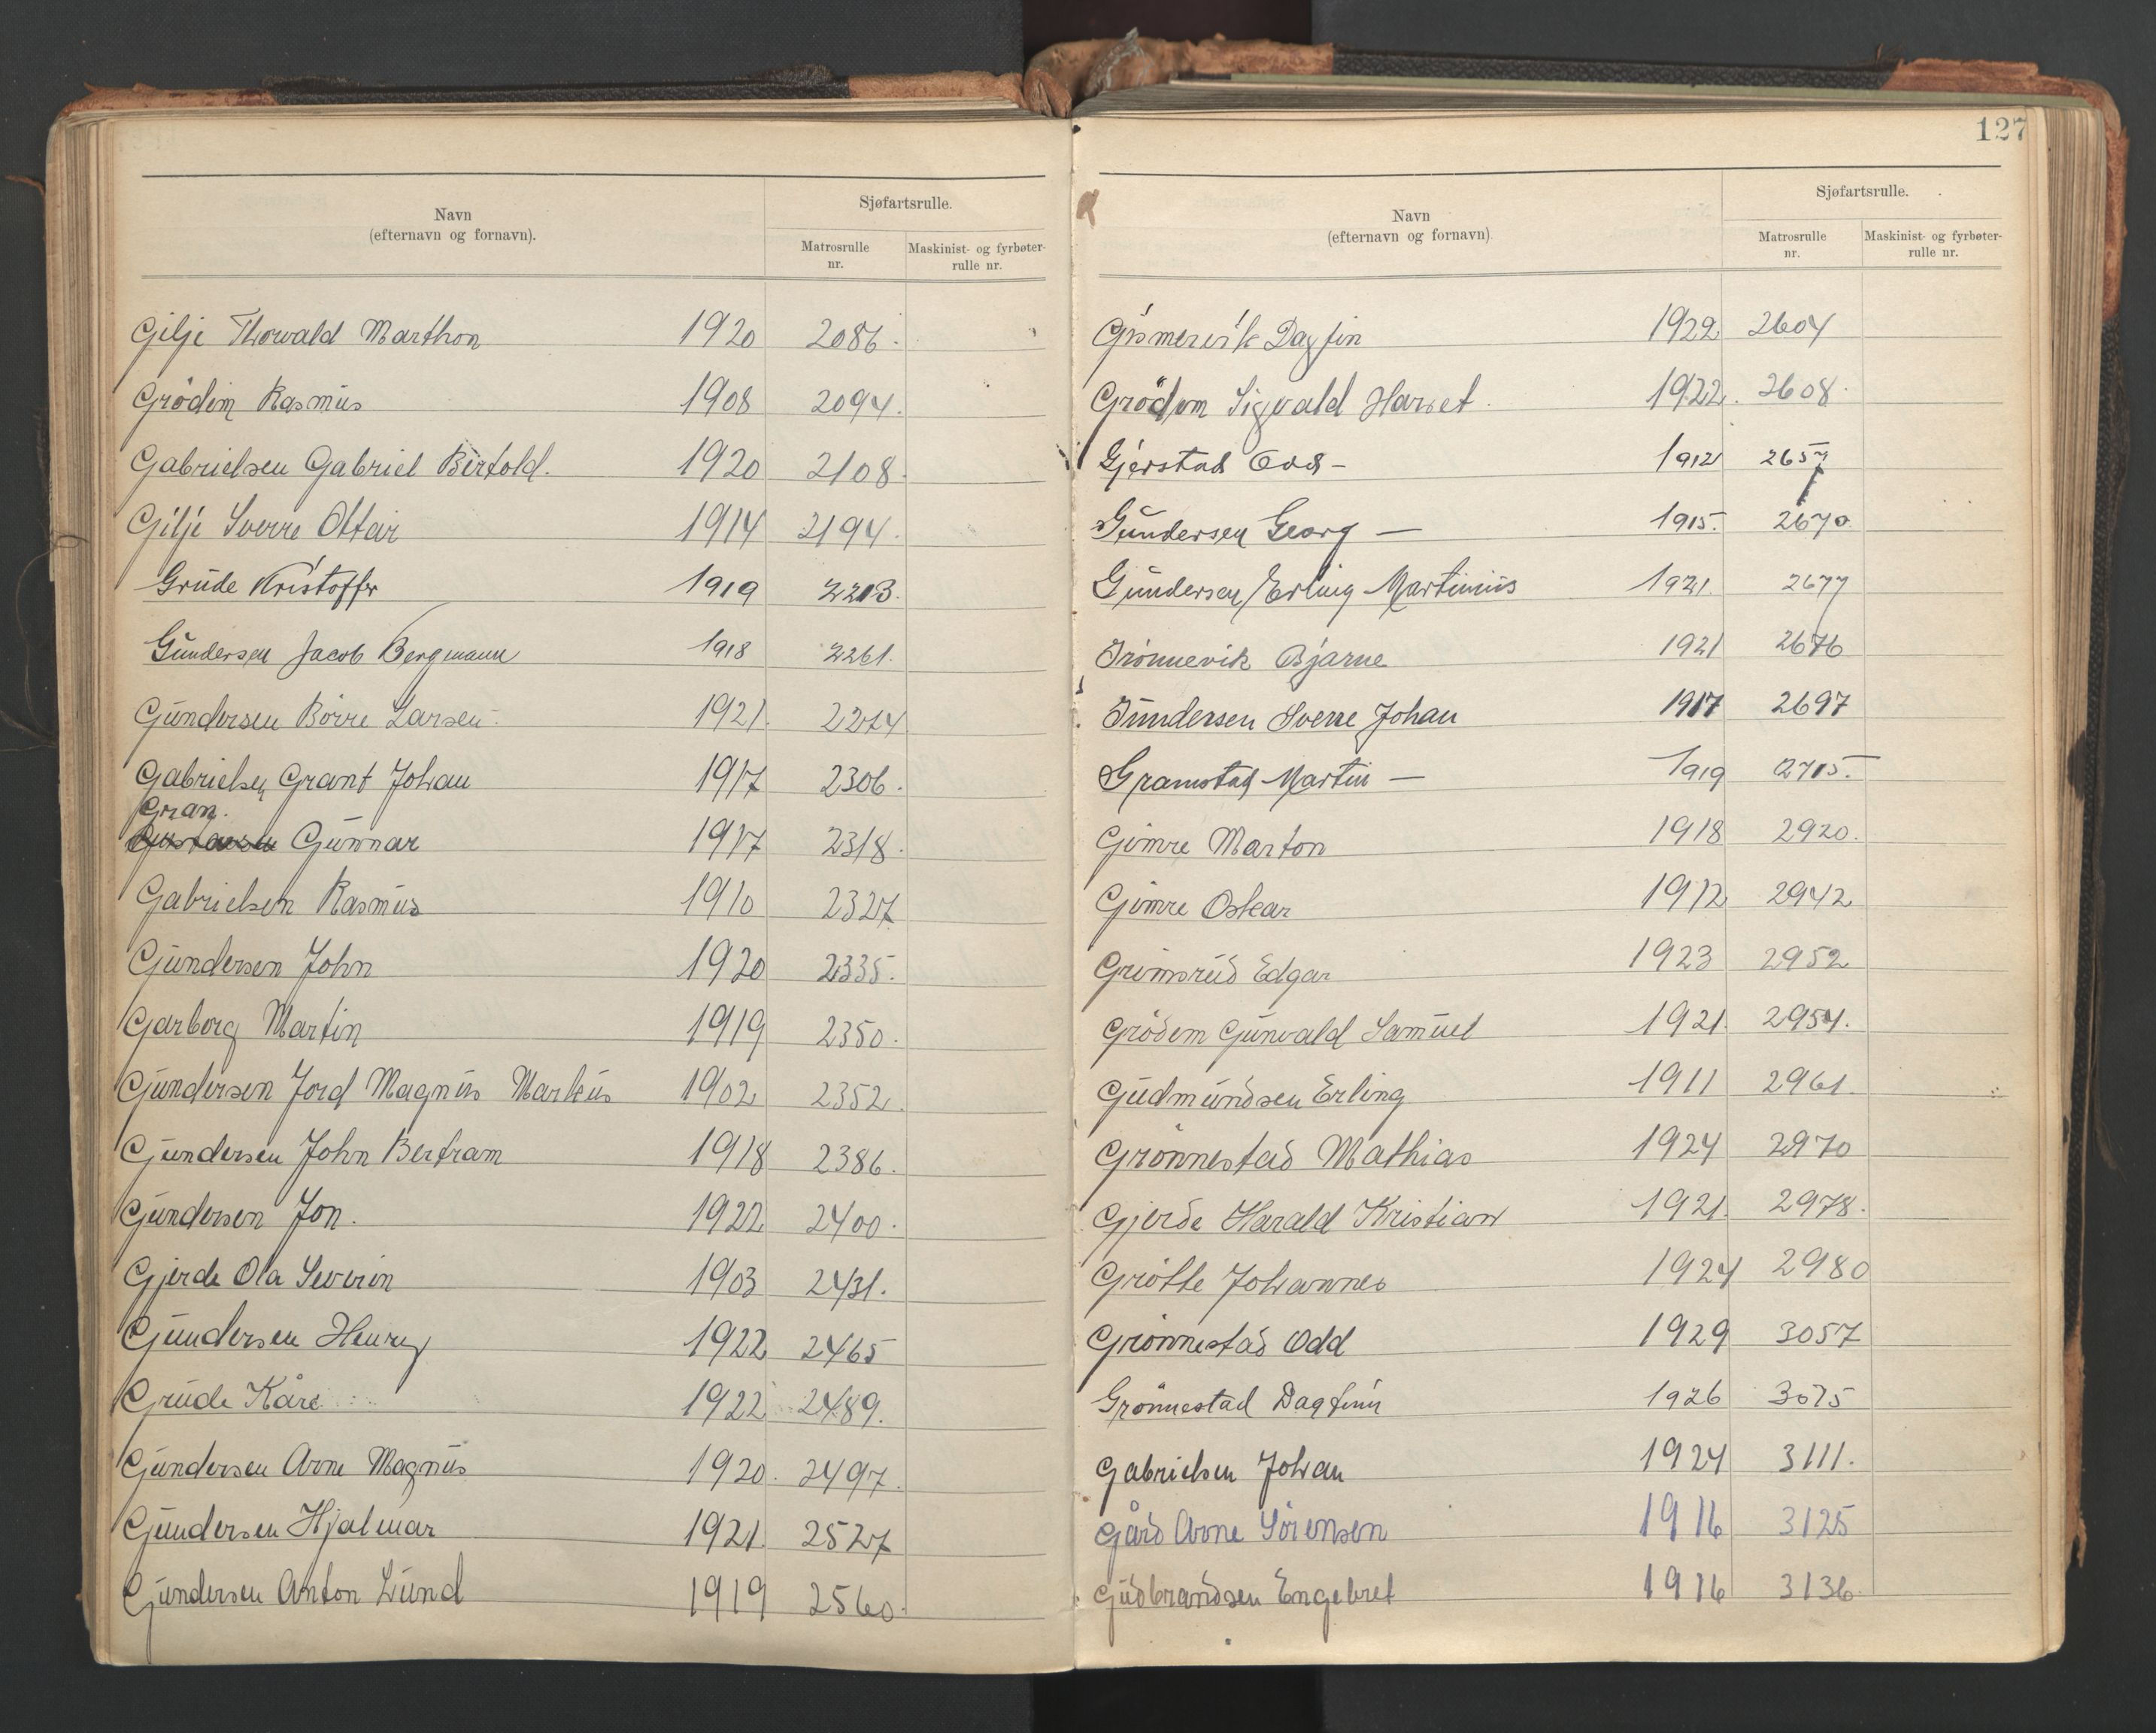 Navn
(efternavn og fornavn).
Sjøfartsrulle.
Matrosrulle
nr.
Maskinist- og fyrbøter-
rulle nr.
Gilje Thorvald Marthon 1920 2086.
Grödem Rasmus 1908 2094.
Gabrielsen Gabriel Bertold. 1920 2108.
Gilje Sverre Ottar 1914 2194.
Grude Kristoffer 1919 2213.
Gundersen Jacob Bergmann 1918 2261.
Gundersen Börre Larsen 1921. 2274
Gabrielsen Grant Johan 1917 2306.
Gran.
Gunnar 1917 2318.
Gabrielsen Rasmus 1910 2327
Gundersen John 1920 2335.
Garborg Martin 1919 2350.
Gundersen Jord Magnus Markus 1902 2352.
Gundersen John Bertram 1918 2386.
Gundersen Jon. 1922 2400.
Gjerde Ola Severin 1903 2431.
Gundersen Henry 1922 2465
Grude Kåre 1922 2489.
Gundersen Arne Magnus 1920. 2497.
Gundersen Hjalmar 1921. 2527
Gundersen Anton Lund 1919 2560.
127
Navn
(efternavn og fornavn).
Sjøfartsrulle.
Matrosrulle
nr.
Maskinist- og fyrbøter-
rulle nr.
Gismervik Dagfin 1922 2604
Grödem Sigvald Harset. 1922. 2608.
Gjerstad Odd - 1912 2657
Gundersen Georg — 1915. 2670.
Gundersen Erling Martinius 1921. 2677
Grönnevik Bjarne 1921 2676
Gundersen Sverre Johan 1917 2697
Gramstad Martin — 1919 2715.
Gimre Marton 1918 2920.
Gimre Oskar 1912 2942
Grimsrud Edgar 1923 2952
Grödem Gunvald Samuel 1921. 2954.
Gudmundsen Erling 1911 2961.
Grönnestad Mathias 1924 2970
Gjerde Harald Kristian 1921. 2978.
Grötte Johannes 1924 2980
Grönnestad Odd 1929 3057
Grönnestad Dagfinn 1926 3075
Gabrielsen Johan 1924 3111.
Gård Arne Sörensen 1916 3125
Gudbrandsen Engebret 1916 3136.